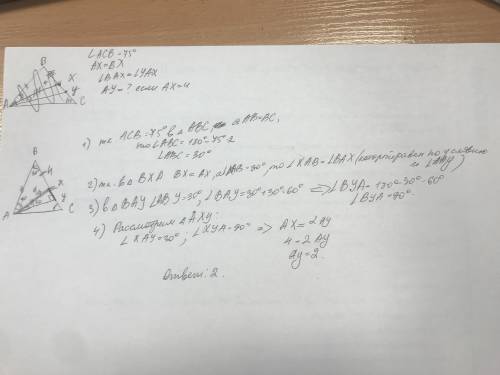 ∠ACB = 75°
AX = BX
∠BAX = ∠YAX
AY = ? если AX = 4
B
X
Y
A
C
1) т.к. ACB = 75° в △ ABC, а AB = BC,
то ∠ABC = 180° - 75°·2
∠ABC = 30°
2) т.к. в △ BXA BX = AX, а ∠AB = 30° то ∠XAB = ∠BAX (который равен по условию
B
4
X
Y
A
C
3) в △ BAY ∠ABY = 30°, ∠BAY = 30° + 30° = 60° => ∠BYA = 180° - 30° - 60°
∠BYA = 90°.
4) Рассмотрим △ AXY:
∠XAY = 30°; ∠XYA = 90° => AX = 2AY
4 = 2AY
AY = 2.
Ответ: 2.